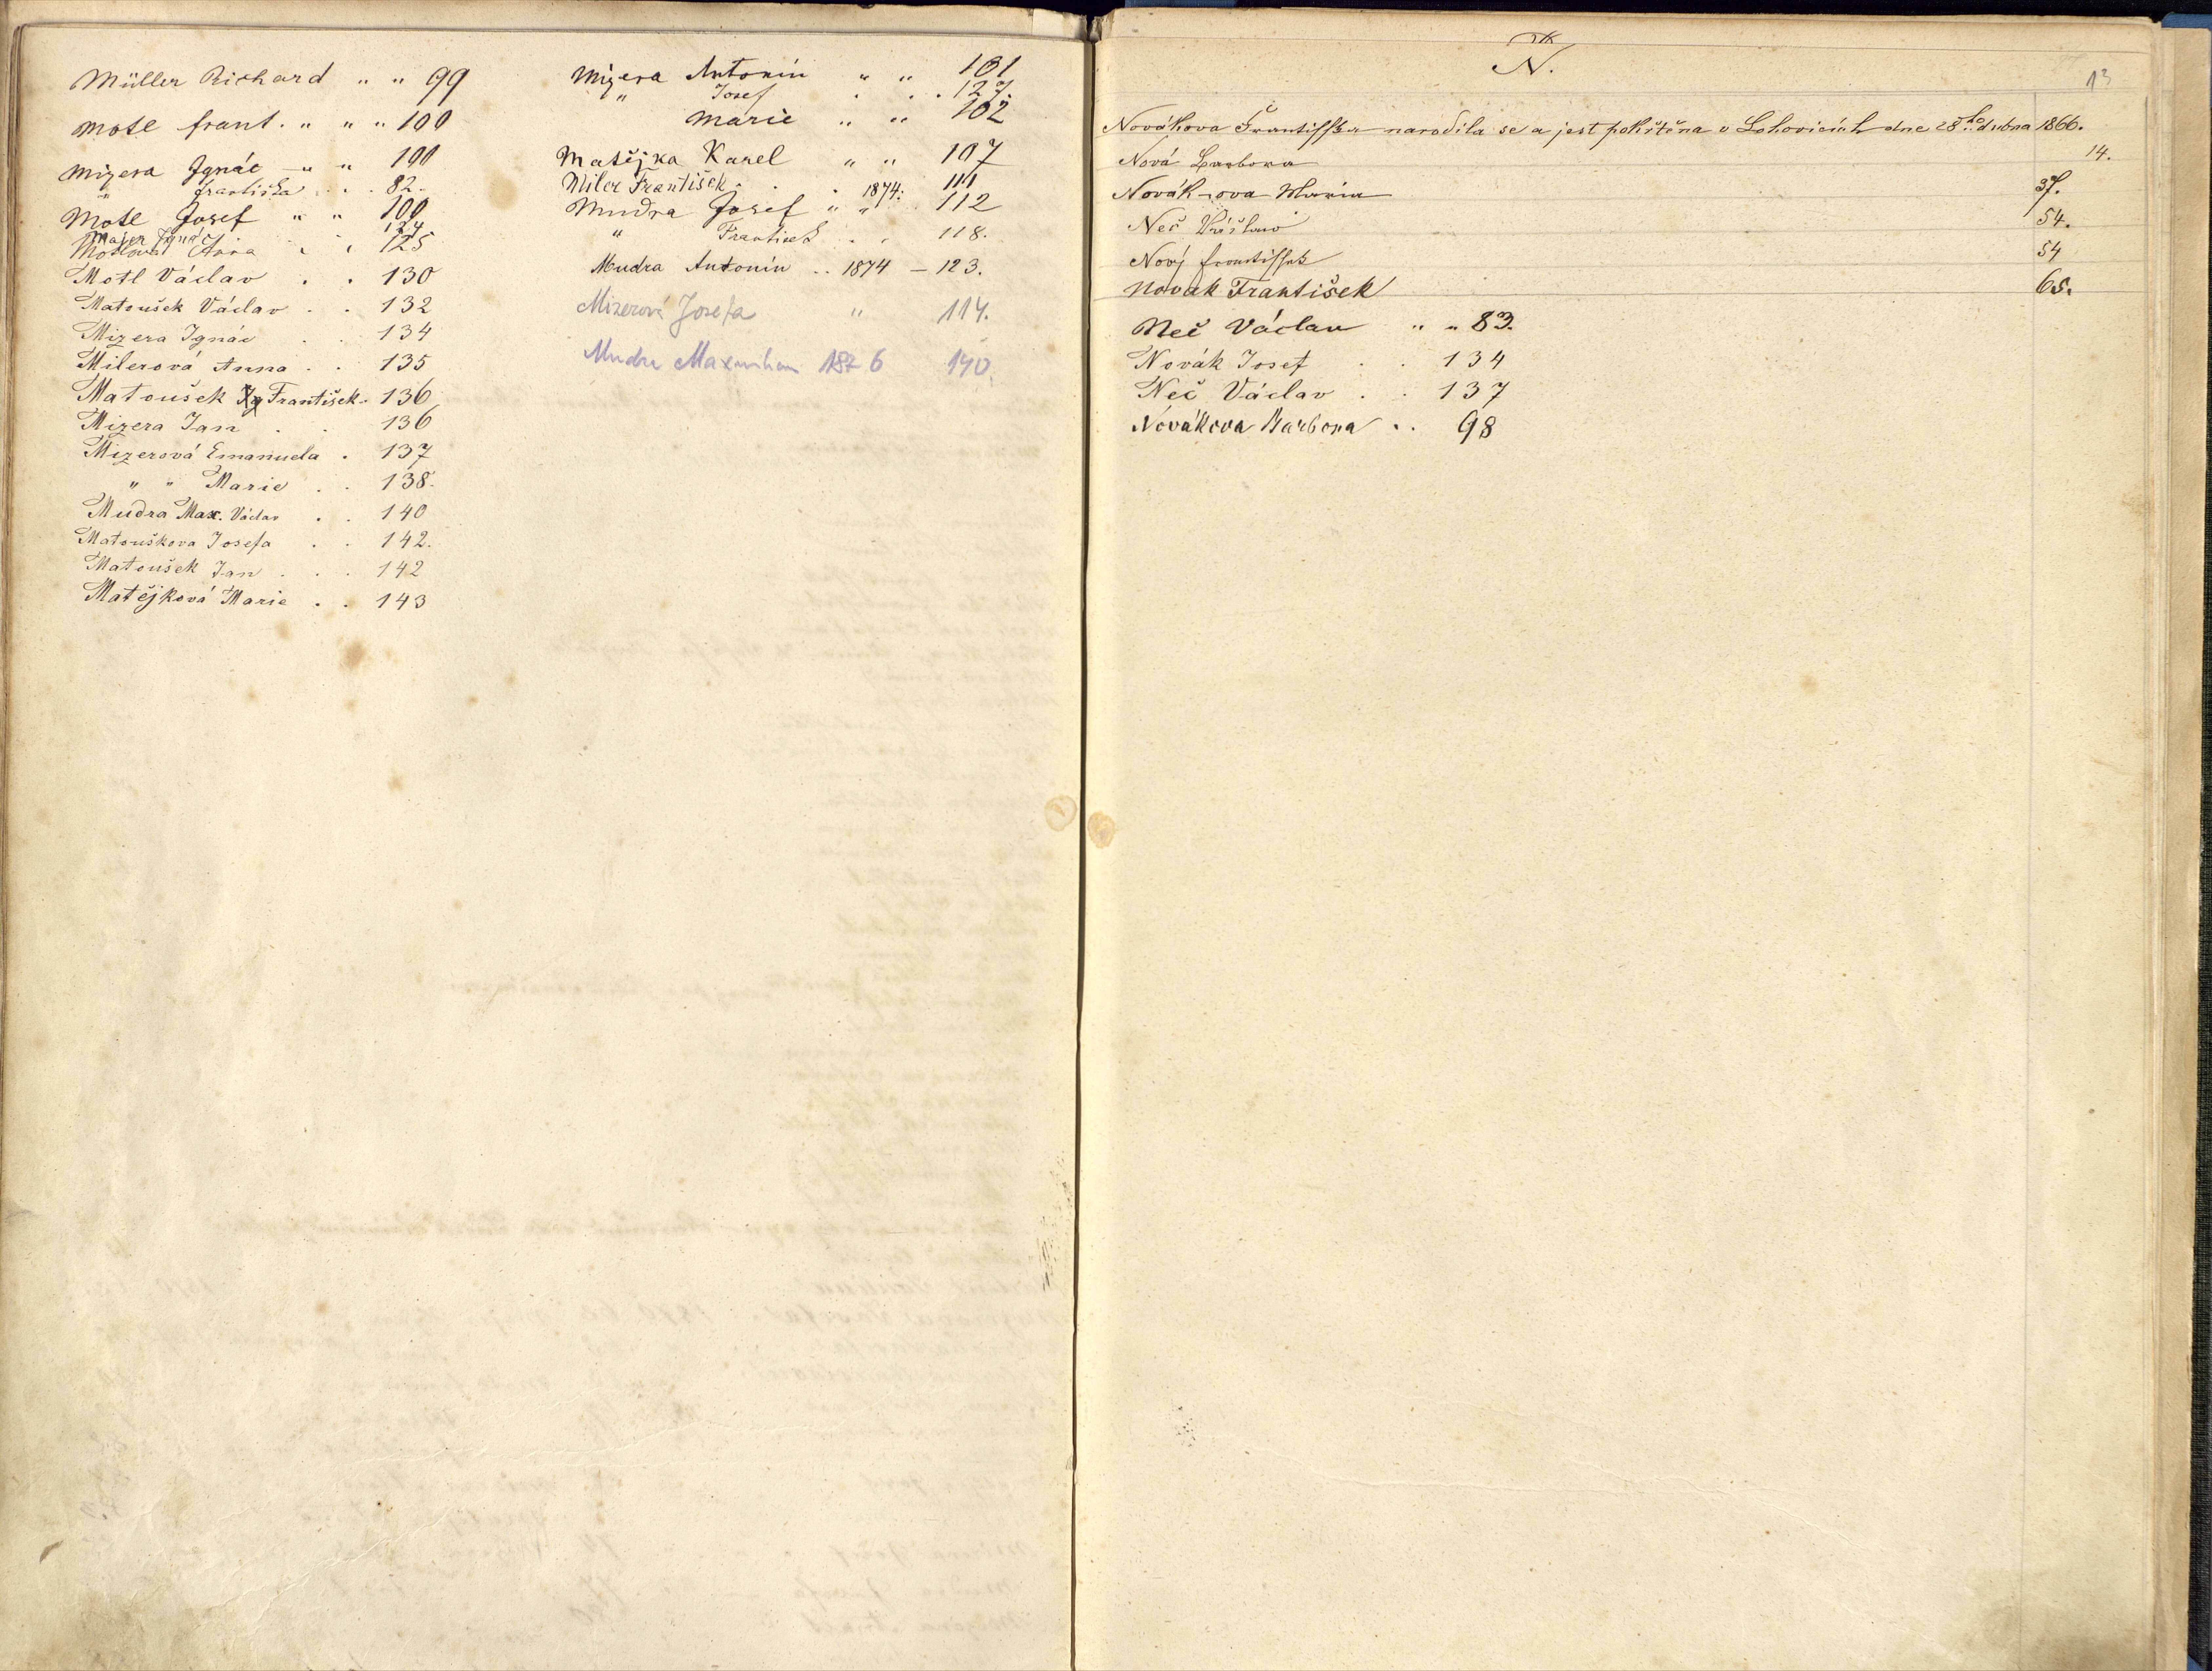 Müller Richard " " 99
Motl frant. " " " 100
Mizera Ignác " " 100
" Františka . . . 82.
Motl Josef " " 100
Majer Ignác 124
Motlova Anna " " 125
Motl Václav . . 130
Matoušek Václav . . 132
Mizera Ignác . . 134
Milerová Anna . . 135
Matoušek Ig František . 136
Mizera Jan . . 136
Mizerová Emanuela . 137
" " Marie . . 138.
Mudra Max. Václav . . 140
Matouškova Josefa . . 142.
Matoušek Jan . . . 142
Matějková Marie . . 143
Mizera Antonín " " 101
" Josef . . . 127.
Marie " " 102
Matějka Karel " " 107
Miler František . . . 1874. 111
Mudra Josef " " . 112
" František . . 118.
Mudra Antonín . . 1874 – 123.
Mizerová Josefa " 114.
Mudra Maxmilian 1876 140
N.
13
Novákova Františka narodila se a jest pokřtěna v Lohovicích dne 28ho dubna 1866.
Nová Barbora 14.
Novákova Maria 37.
Neč 54.
Nový František 54
Novák František 65.
Neč Václav " " 83.
Novák Josef . . 134
Neč Václav . . 137
Novákova Barbora . . 98